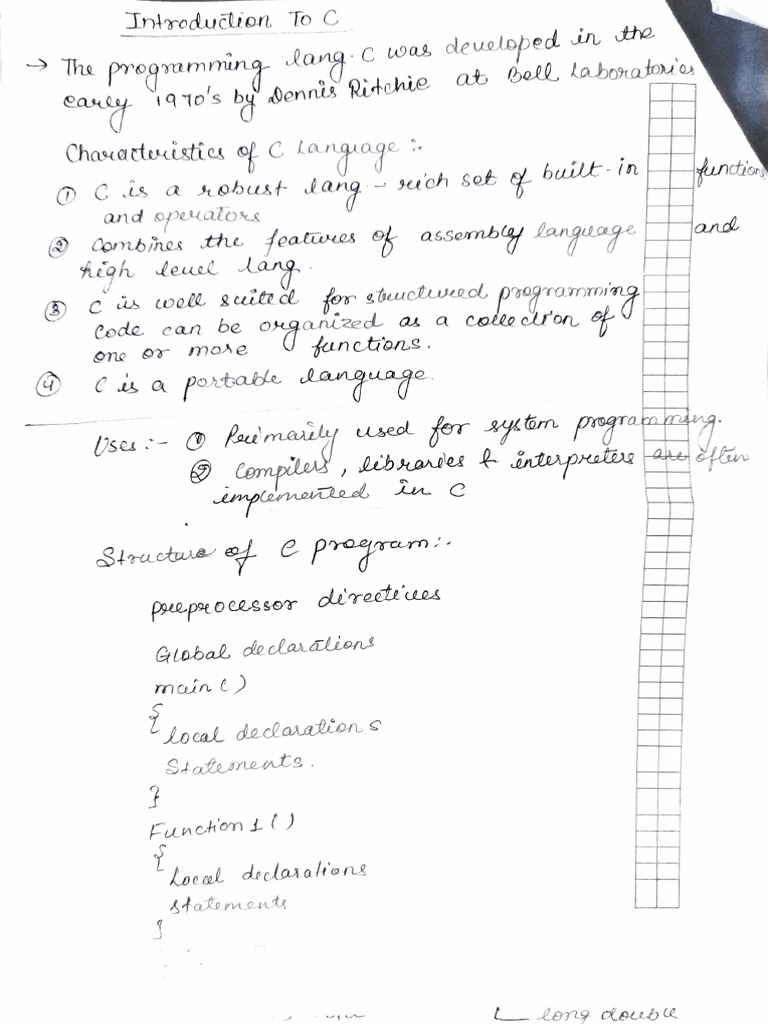 Introduction To C
→ The programming lang. C was developed in the
early 1970's by Dennis Ritchie at Bell Laboratories
Characteristics of C Language :-
① C is a robust lang - rich set of built-in functions
and operators
② Combines the features of assembly language and
high level lang.
③ C is well suited for structured programming
code can be organized as a collection of
one or more functions.
④ C is a portable language.
Uses :- ① Primarily used for system programming.
② Compilers, libraries & interpreters are often
implemented in C
Structure of C program :-
preprocessor directives
Global declarations
main()
{
local declarations
Statements.
}
Function1()
{
Local declarations
statements
}
long double